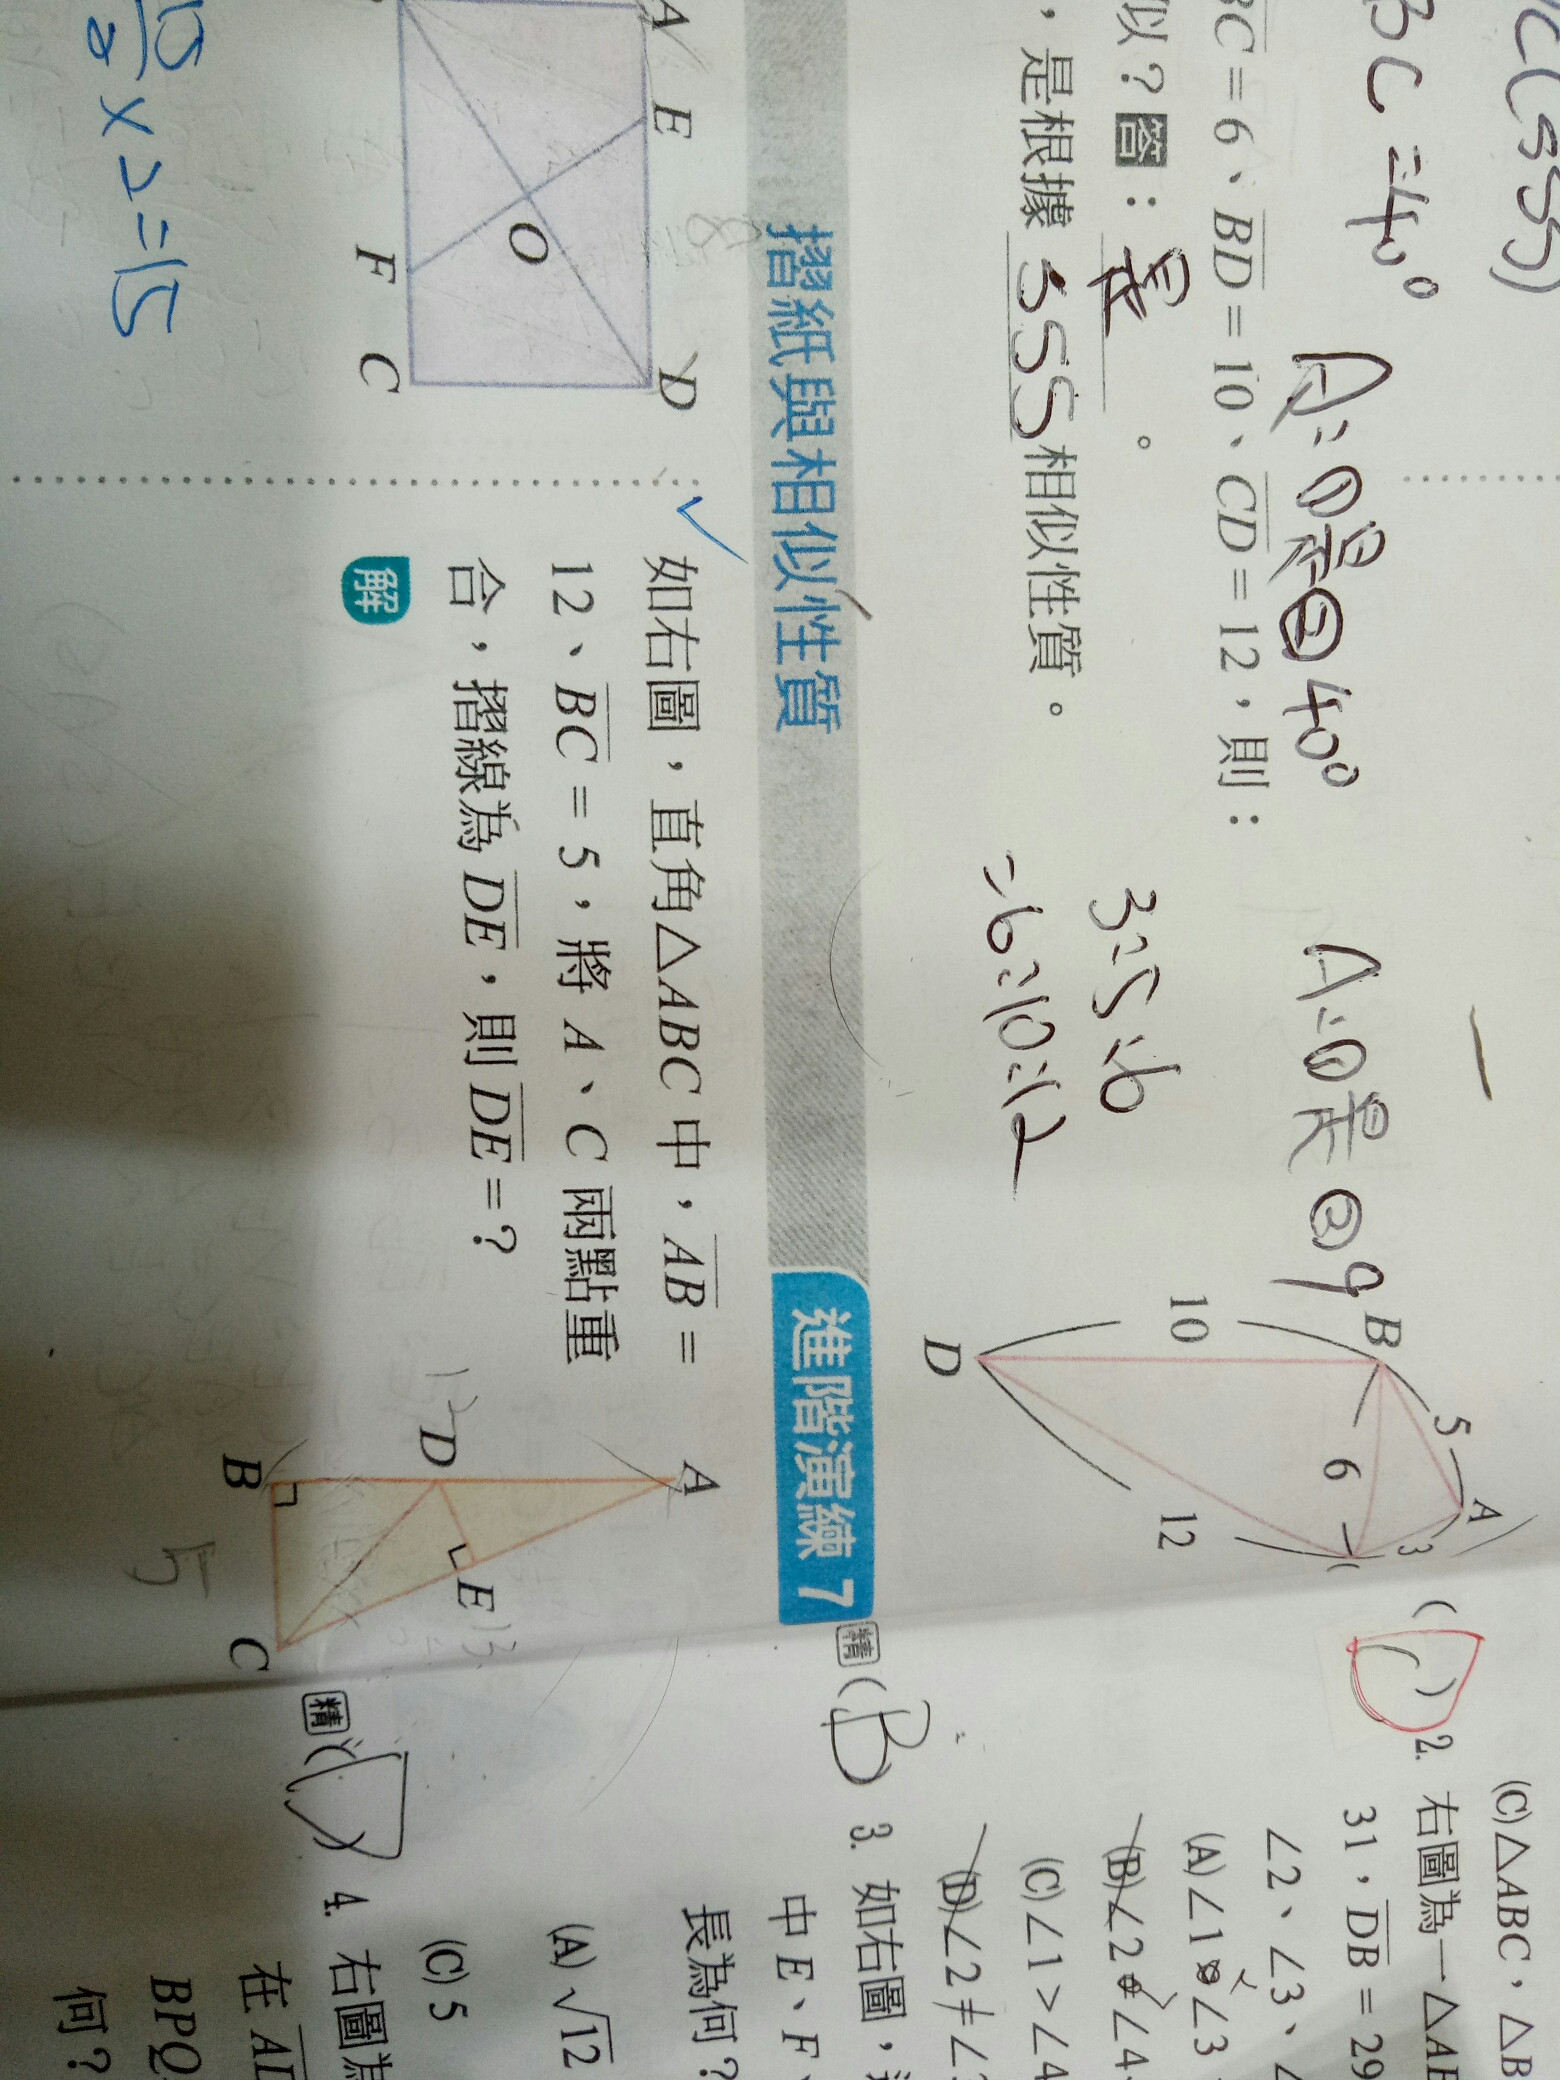 C(SSS)
BC=40°
A:①是②40°
A:①是②9
BC=6、BD=10、CD=12，則：
似？答：是。
，是根據SSS相似性質。
3:5:6
=6:10:12
B
5
A
3
6
10
12
D
摺紙與相似性質
進階演練 7
如右圖，直角△ABC中，AB=
12、BC=5，將A、C兩點重
合，摺線為DE，則DE=？
解
A
D
E
13
B
C
5
12
A
E
D
O
F
C
15/2×2=15
(C)△ABC，△B
2. 右圖為一△AB
31，DB=29
∠2、∠3、∠
(A)∠1 ∠3
(B)∠2 ∠4
(C)∠1>∠4
(D)∠2≠∠3
精(B)3. 如右圖，
中E、F、
長為何？
(A)√12
(C)5
精( )4. 右圖為
在AD
BPQ
何？